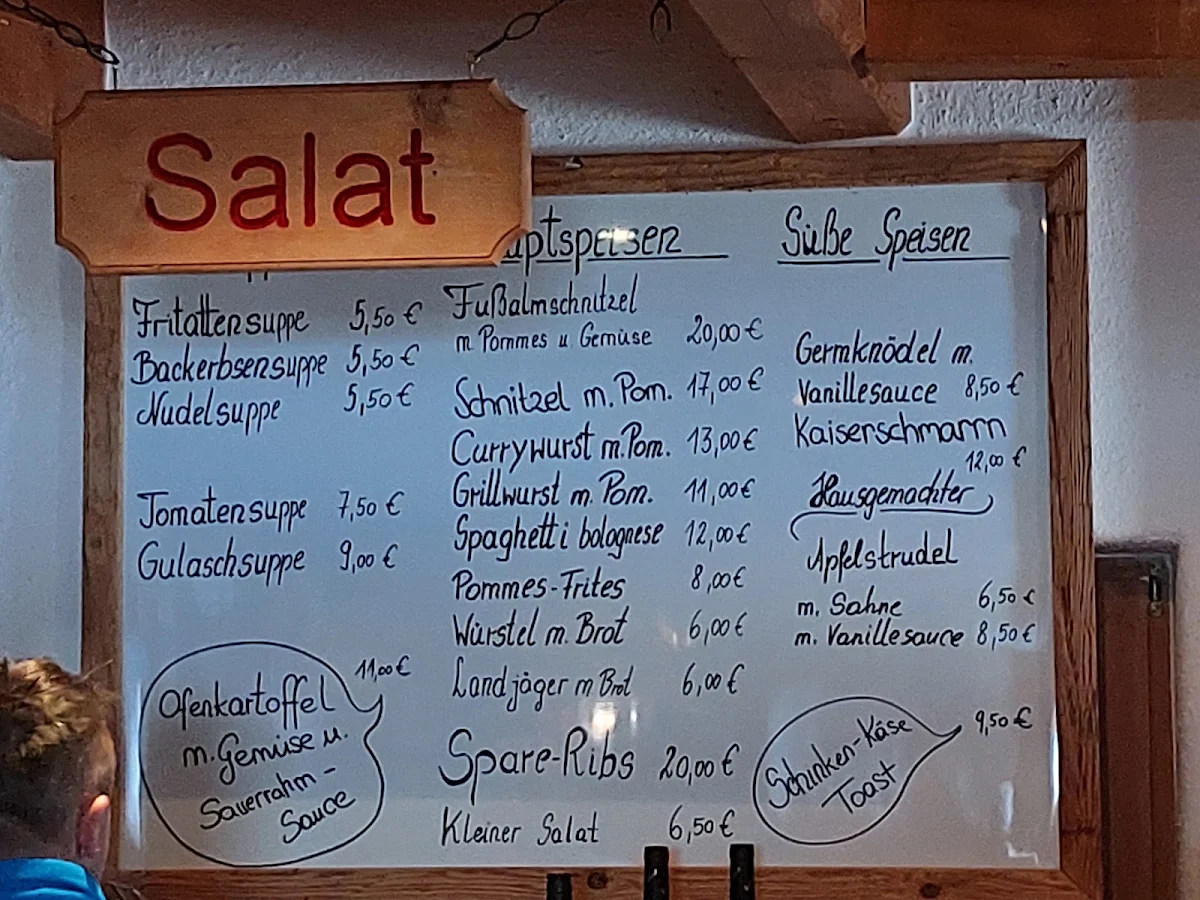 Salat
Fritattensuppe 5,50 €
Backerbsensuppe 5,50 €
Nudelsuppe 5,50 €
Tomatensuppe 7,50 €
Gulaschsuppe 9,00 €
Ofenkartoffel 11,00 €
m. Gemüse u.
Sauerrahm-
Sauce
uptspeisen
Fußalmschnitzel
m Pommes u Gemüse 20,00 €
Schnitzel m. Pom. 17,00 €
Currywurst m. Pom. 13,00 €
Grillwurst m. Pom. 11,00 €
Spaghetti bolognese 12,00 €
Pommes-Frites 8,00 €
Würstel m. Brot 6,00 €
Landjäger m Brot 6,00 €
Spare-Ribs 20,00 €
Kleiner Salat 6,50 €
Süße Speisen
Germknödel m.
Vanillesauce 8,50 €
Kaiserschmarrn
12,00 €
Hausgemachter
Apfelstrudel
m. Sahne 6,50 €
m. Vanillesauce 8,50 €
Schinken-Käse 9,50 €
Toast